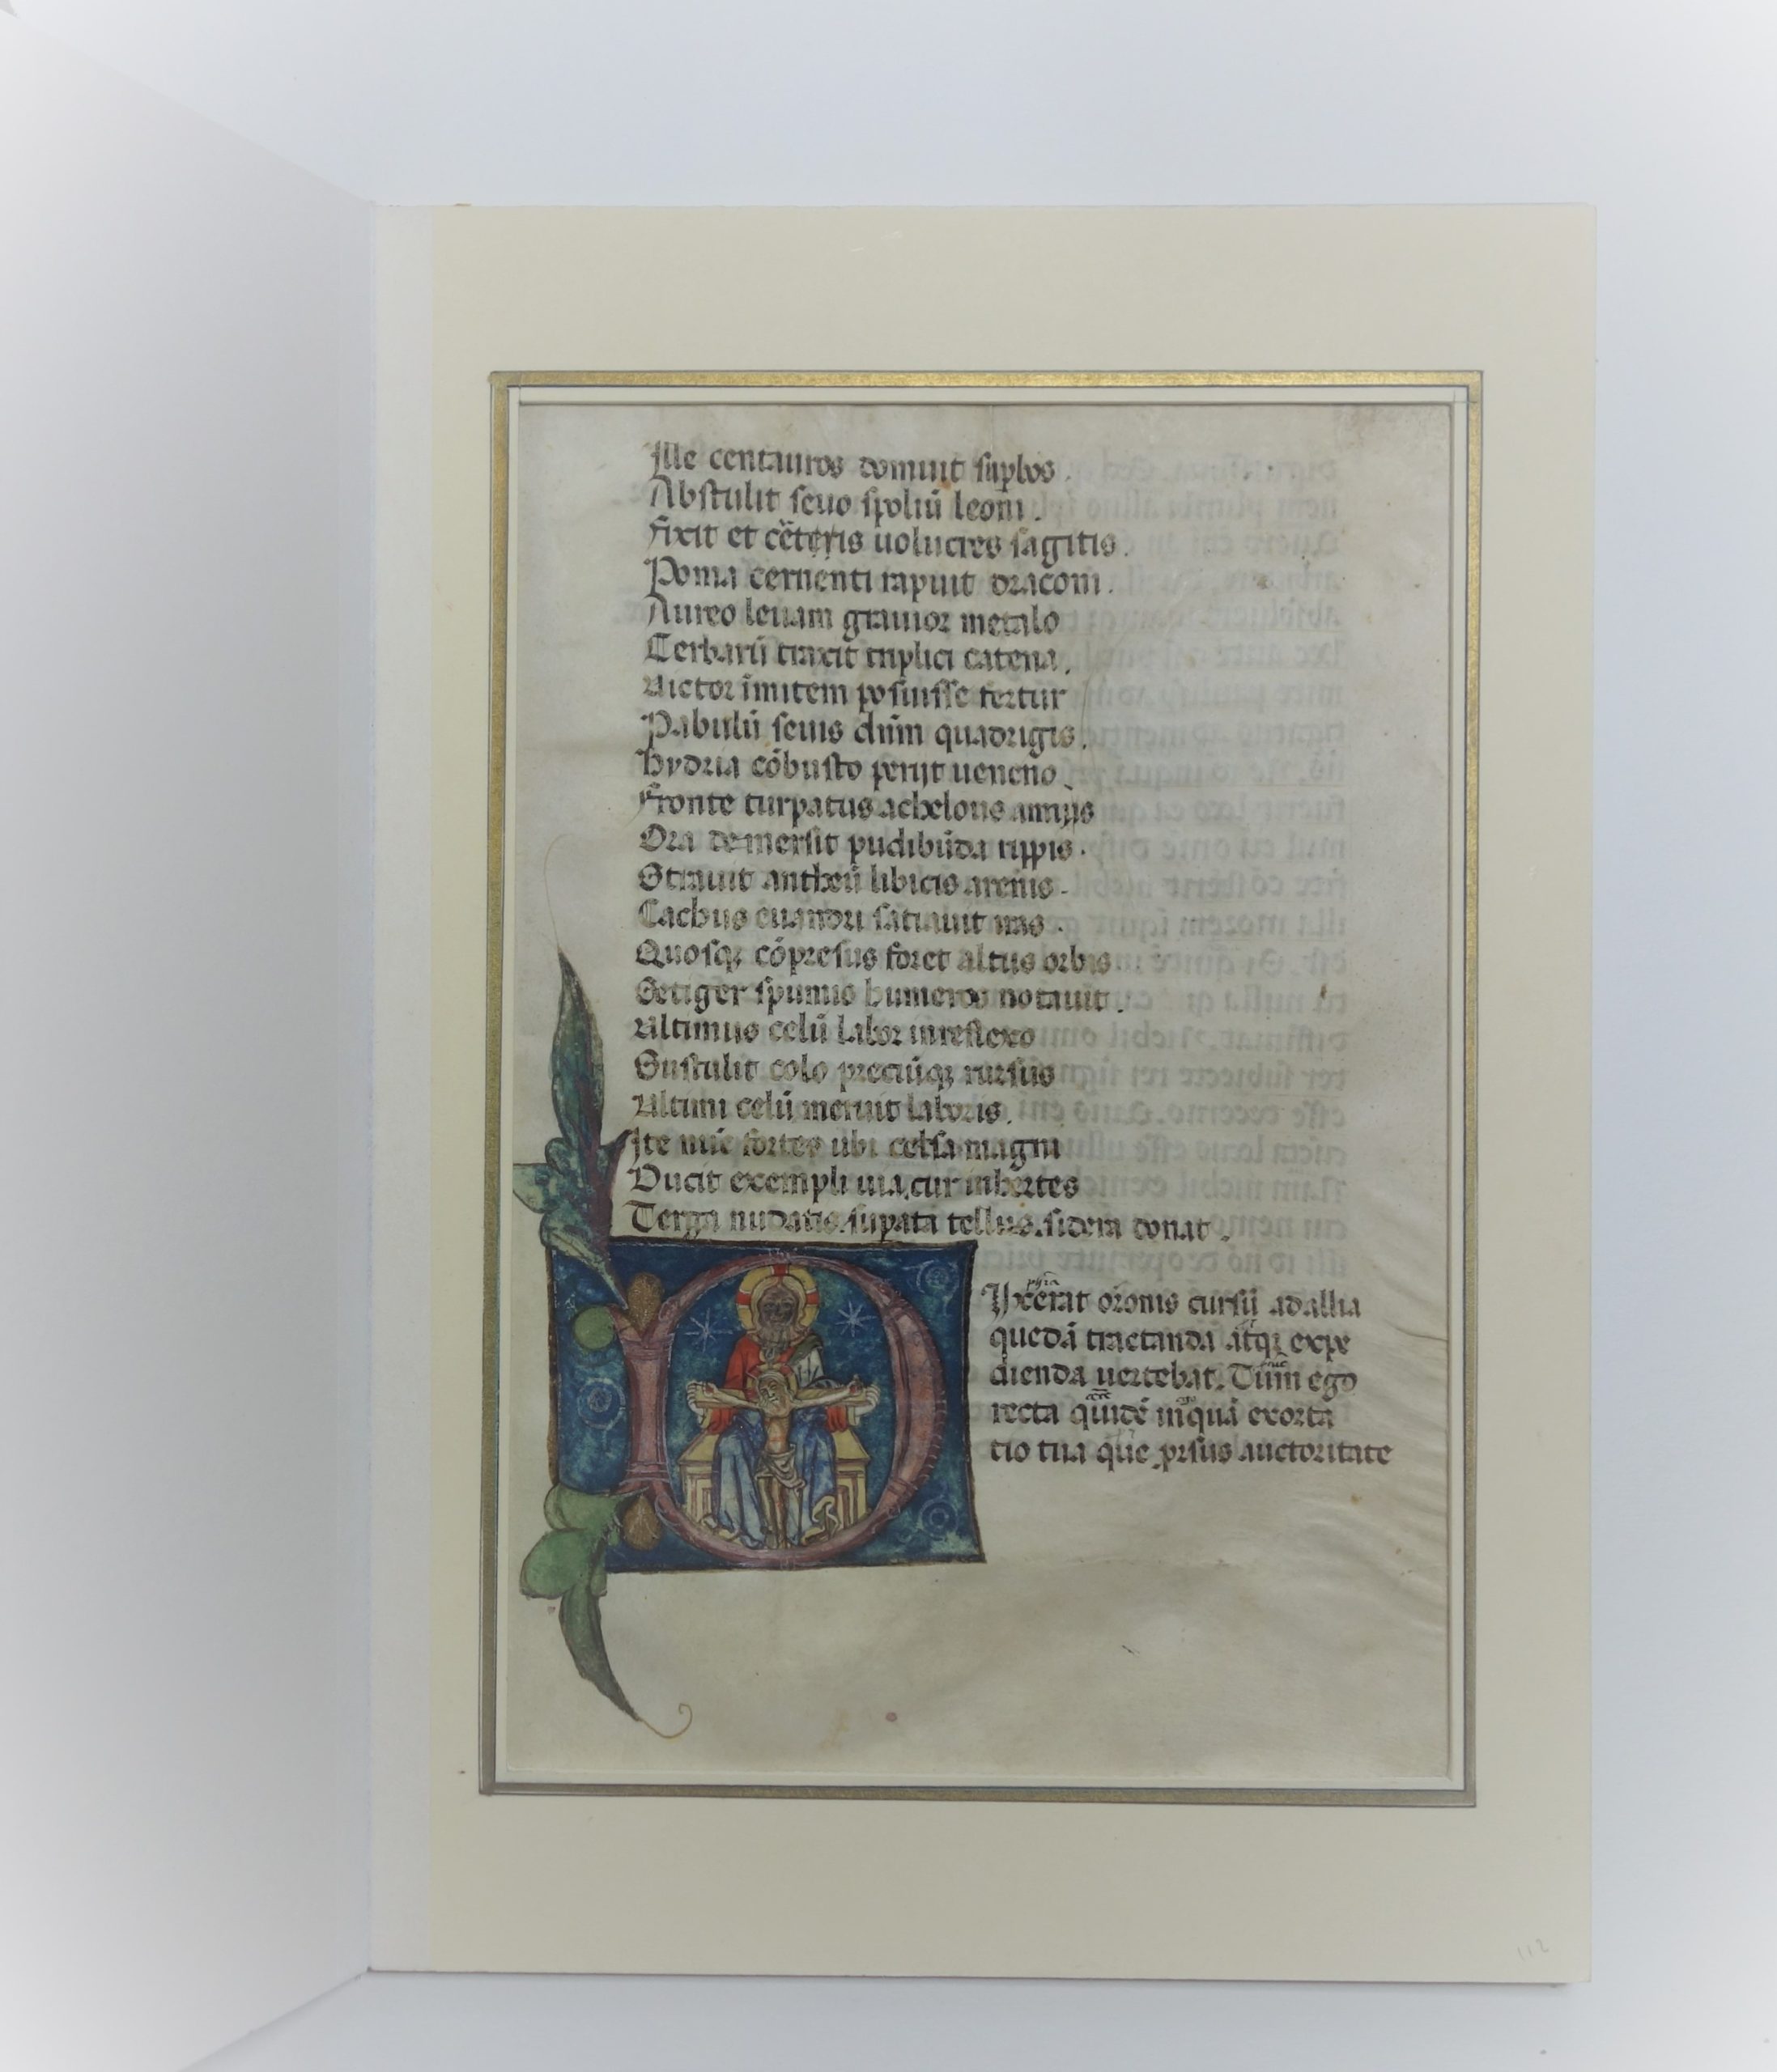 Ille centauros domuit suꝑbos .
Abstulit seuo spoliū leoni .
Fixit et cēteris uolucres sagitis .
Poma cernenti rapuit draconi .
Aureo leuam grauior metalo
Cerbarū traxit triplici catena .
Uictor īmitem posuisse fertur
Pabulū seuis dn̄m quadrigis .
Hydria cōbusto perijt ueneno .
Fronte turpatus achelous amnis
Ora demersit pudibūda rippis .
Strauit antheū libicis arenis .
Cachus euandri satiauit iras .
Quosqꝫ cōpresus foret altus orbis
Setiger spumis humeros notauit .
Ultimus celū labor inreflexo
Sustulit colo preciūqꝫ rursus
Ultimi celū meruit laboris .
Ite nūc fortes ubi celsa magni
Ducit exempli uia, cur inhertes
Terga nudatis . suꝑata tellus . sidera donat .
phīa
Ixerat orōnis cursū ad allia
quedā tractanda atqꝫ expe
dienda uertebat. Tum ego
recta quidē inquā exorta
tio tua que prsus auctoritate
112